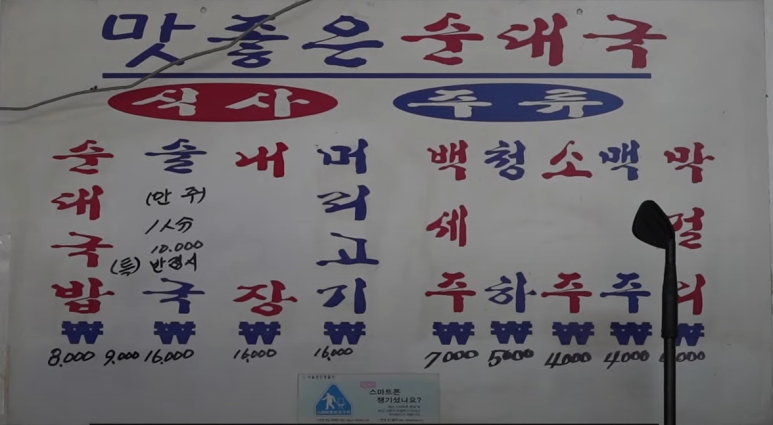 맛좋은 순대국
식사
주류
순대국밥
₩
8,000
(특)
9,000
술국
(안주)
1人分
10.000
반접시
₩
16,000
내장
₩
16,000
머리고기
₩
16,000
백세주
₩
7000
청하
₩
5000
소주
₩
4000
맥주
₩
4000
막걸리
₩
스마트폰
챙기셨나요?